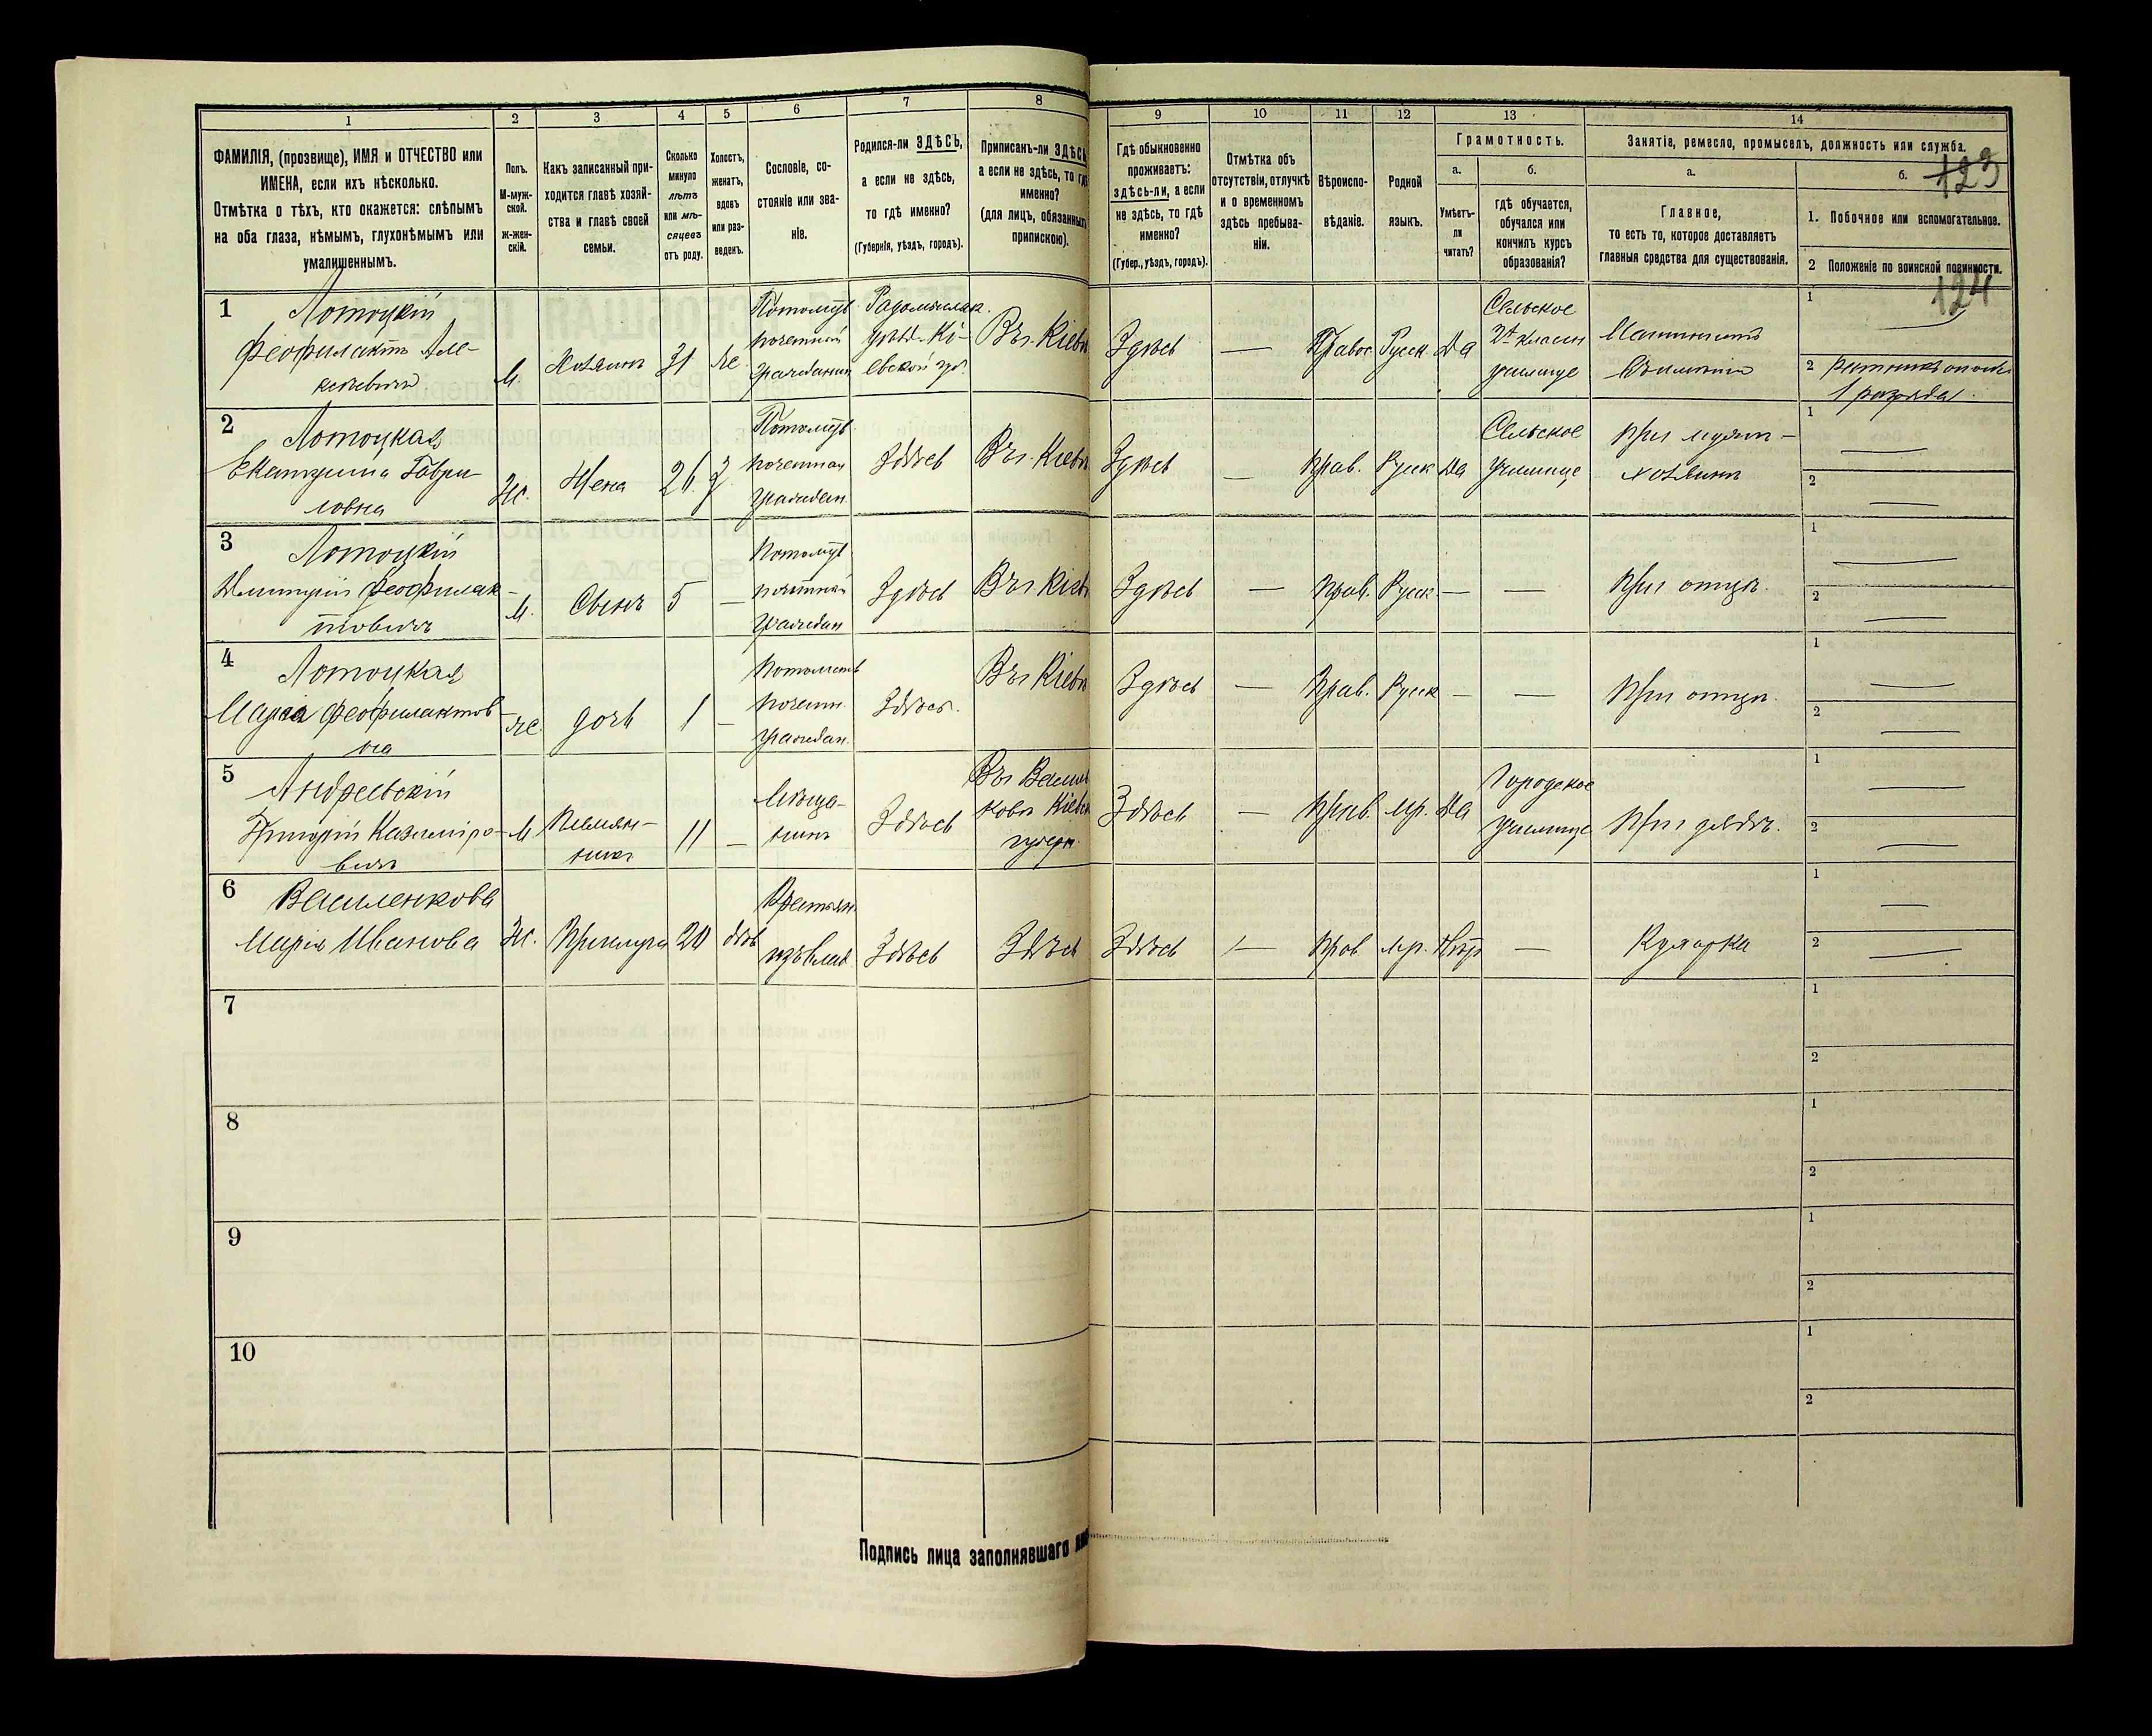 1
ФАМИЛІЯ, (прозвище), ИМЯ и ОТЧЕСТВО или
ИМЕНА, если ихъ нѣсколько.
Отмѣтка о тѣхъ, кто окажется: слѣпымъ
на оба глаза, нѣмымъ, глухонѣмымъ или
умалишеннымъ.
2
Полъ.
М-муж-
ской.
ж-жен-
скій.
3
Какъ записанный при-
ходится главѣ хозяй-
ства и главѣ своей
семьи.
4
Сколько
минуло
лѣтъ
или мѣ-
сяцевъ
отъ роду.
5
Холостъ,
женатъ,
вдовъ
или раз-
веденъ.
6
Сословіе, со-
стояніе или зва-
ніе.
7
Родился-ли ЗДѢСЬ,
а если не здѣсь,
то гдѣ именно?
(Губернія, уѣздъ, городъ).
8
Приписанъ-ли ЗДѢСЬ
а если не здѣсь, то гдѣ
именно?
(для лицъ, обязанныхъ
припискою).
9
Гдѣ обыкновенно
проживаетъ:
здѣсь-ли, а если
не здѣсь, то гдѣ
именно?
(Губер., уѣздъ, городъ).
10
Отмѣтка объ
отсутствіи, отлучкѣ
и о временномъ
здѣсь пребыва-
ніи.
11
Вѣроиспо-
вѣданіе.
12
Родной
языкъ.
13
Грамотность.
а.
Умѣетъ-
ли
читать?
б.
гдѣ обучается,
обучался или
кончилъ курсъ
образованія?
14
Занятіе, ремесло, промыселъ, должность или служба.
а.
Главное,
то есть то, которое доставляетъ
главныя средства для существованія.
б.
123
1. Побочное или вспомогательное.
2 Положеніе по воинской повинности.
124
1
Лотоцкій
Феофилактъ Але-
ксѣевичъ
М.
Хозяинъ
31
же.
Потомств.
почетный
гражданин
Радомысльск.
уѣзд. Кі-
евской губ.
Въ г. Кіевѣ
Здѣсь
—
Правос
Русск.
Да
Сельское
2х класн
училище
1
2 ратникъ ополч.
1 разряда.
2
Лотоцкая
Екатерина Гаври-
ловна
Ж.
Жена
26
З
Потомств.
почетная
граждан.
Здѣсь
Въ г. Кіевѣ
Здѣсь
—
Прав.
Русск
Да
Сельское
училище
При мужѣ -
хозяинѣ
1
2
3
Лотоцкій
Дмитрій Феофилак-
товичъ
М.
Сынъ
5
—
Потомств
почетный
граждан
Здѣсь
Въ г. Кіев
Здѣсь
—
Прав.
Русск.
—
—
При отцѣ.
1
2
4
Лотоцкая
Марія Феофилактов-
на
же.
дочь
1
—
Потомств
почетн.
граждан.
Здѣсь.
Въ г. Кіевѣ
Здѣсь
—
Прав.
Русск
—
—
При отцѣ.
1
2
5
Андреевскій
Григорій Казиміро-
вичъ
М
Племян-
никъ
11
—
Мѣща-
нинъ
Здѣсь
Въ г. Василь
ковѣ Кіевск
губерн.
Здѣсь
—
Прав.
мр.
Да
Городское
училище
При дядѣ.
1
2
6
Василенкова
Марія Иванова
Ж.
Прислуга
20
дѣв
Крестьян.
Здѣсь
Здѣсь
Здѣсь
—
Прав
мр.
Нѣт
—
Кухарка
1
2
7
1
2
8
1
2
9
1
2
10
1
2
Подпись лица заполнявшаго